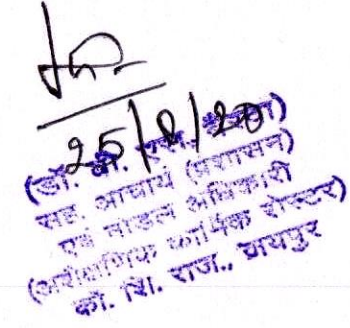 25/8/20
(डॉ.
सह. आचार्य (प्रशासन)
एवं नोडल अधिकारी
(अशैक्षणिक कार्मिक रोस्टर)
कॉ. शि. राज., जयपुर